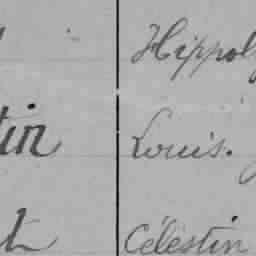 Hippoly
tin Louis.
Célestin